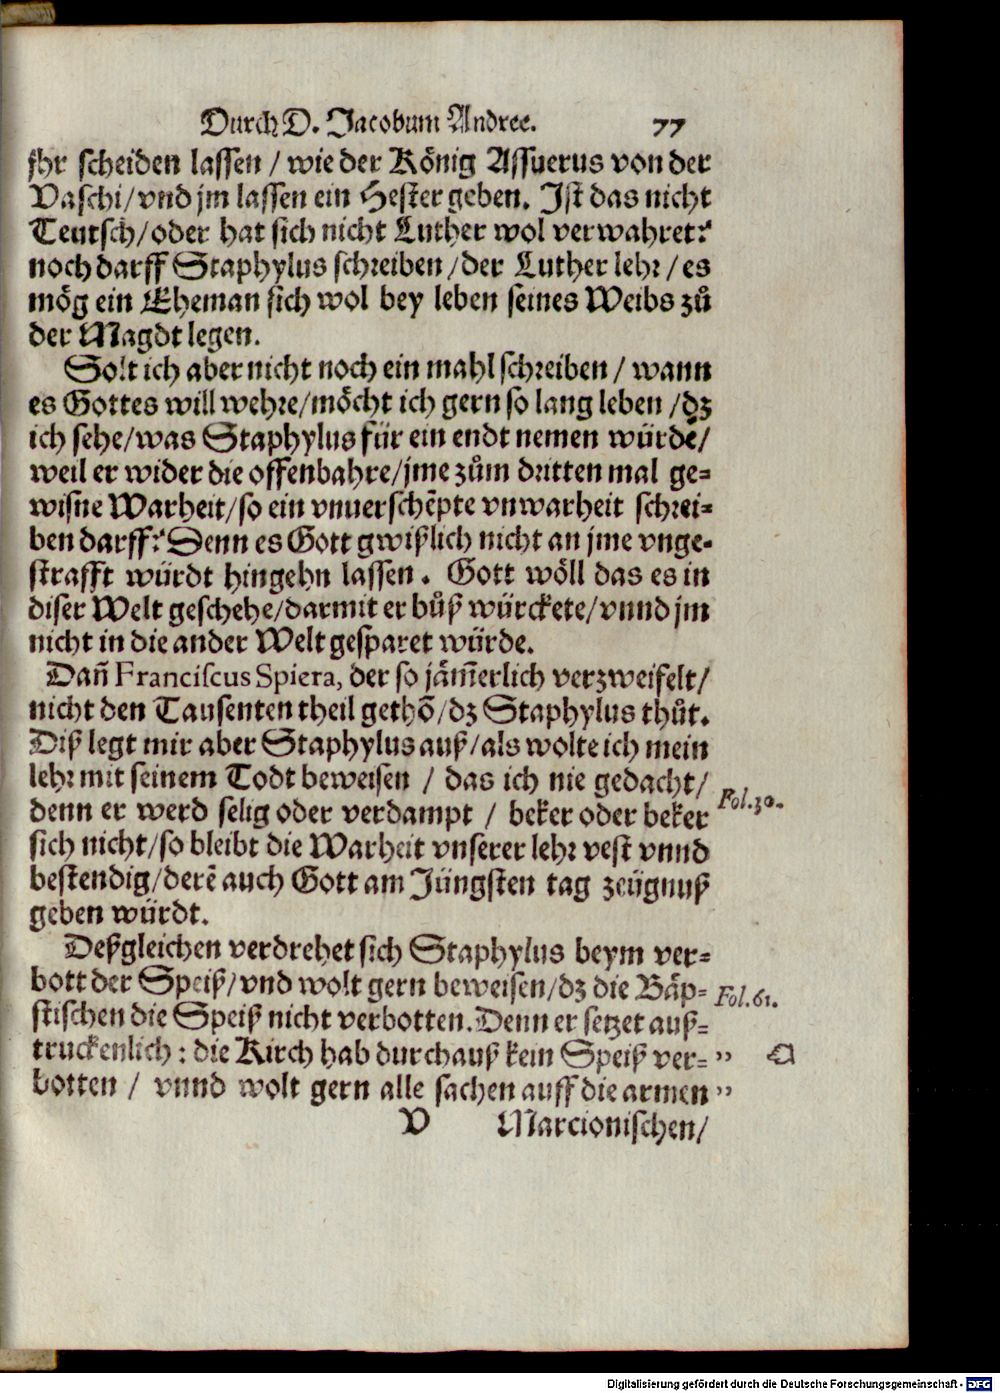 Durch D. Jacobum Andree. 77
jhr scheiden lassen / wie der König Assuerus von der
Vaschi/vnd jm lassen ein Hester geben. Ist das nicht
Teutsch/oder hat sich nicht Luther wol verwahret?
noch darff Staphylus schreiben/der Luther lehr/es
mög ein Eheman sich wol bey leben seines Weibs zů
der Magdt legen.
Solt ich aber nicht noch ein mahl schreiben / wann
es Gottes will wehre/möcht ich gern so lang leben /dz
ich sehe/was Staphylus für ein endt nemen würde/
weil er wider die offenbahre/jme zům dritten mal ge⸗
wisne Warheit/so ein vnuerschẽpte vnwarheit schrei⸗
ben darff? Denn es Gott gwißlich nicht an jme vnge⸗
strafft würdt hingehn lassen. Gott wöll das es in
diser Welt geschehe/darmit er bůß würckete/vnnd jm
nicht in die ander Welt gesparet würde.
Dañ Franciscus Spiera, der so jäm̃erlich verzweifelt/
nicht den Tausenten theil gethõ/dz Staphylus thůt.
Diß legt mir aber Staphylus auß/als wolte ich mein
lehr mit seinem Todt beweisen / das ich nie gedacht/
denn er werd selig oder verdampt / beker oder beker Fol.30.
sich nicht/so bleibt die Warheit vnserer lehr vest vnnd
bestendig/derẽ auch Gott am Jüngsten tag zeügnuß
geben würdt.
Deßgleichen verdrehet sich Staphylus beym ver⸗
bott der Speiß/vnd wolt gern beweisen/dz die Bäp⸗ Fol.61.
stischen die Speiß nicht verbotten. Denn er setzet auß⸗
truckenlich: die Kirch hab durchauß kein Speiß ver⸗ ”
botten / vnnd wolt gern alle sachen auff die armen ”
V Marcionischen/
Digitalisierung gefördert durch die Deutsche Forschungsgemeinschaft - DFG